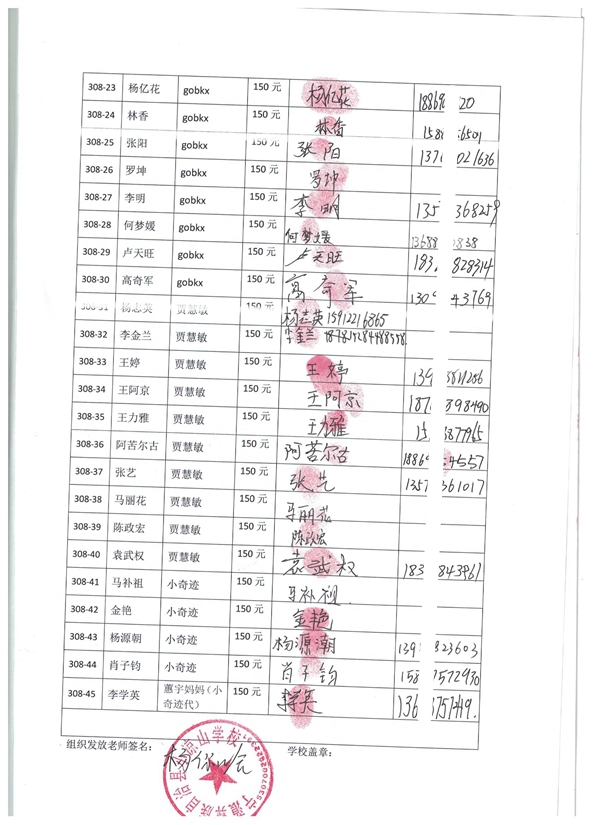 308-23 杨亿花 gobkx 150 元 杨亿花 18869 20
308-24 林香 gobkx 150 元 林香 158 6501
308-25 张阳 gobkx 150 元 张阳 137 021636
308-26 罗坤 gobkx 150 元 罗坤
308-27 李明 gobkx 150 元 李明 135 368259
308-28 何梦媛 gobkx 150 元 何梦媛 13688 838
308-29 卢天旺 gobkx 150 元 卢天旺 183 828314
308-30 高奇军 gobkx 150 元 高奇军 130 43769
308-31 杨志英 贾慧敏 150 元 杨志英 15912216865
308-32 李金兰 贾慧敏 150 元 李金兰
308-33 王婷 贾慧敏 150 元 王婷 139
308-34 王阿京 贾慧敏 150 元 王阿京 187 898490
308-35 王力雅 贾慧敏 150 元 王力雅 15 3877965
308-36 阿苦尔古 贾慧敏 150 元 阿苦尔古 18860 4557
308-37 张艺 贾慧敏 150 元 张艺 1357 361017
308-38 马丽花 贾慧敏 150 元 马丽花
308-39 陈政宏 贾慧敏 150 元 陈政宏
308-40 袁武权 贾慧敏 150 元 袁武权 183 843961
308-41 马补祖 小奇迹 150 元 马补祖
308-42 金艳 小奇迹 150 元 金艳
308-43 杨源朝 小奇迹 150 元 杨源潮 139 823603
308-44 肖子钧 小奇迹 150 元 肖子钧 158 7572930
308-45 李学英 蕙宇妈妈（小奇迹代） 150 元 李学英 136
组织发放老师签名： 学校盖章：